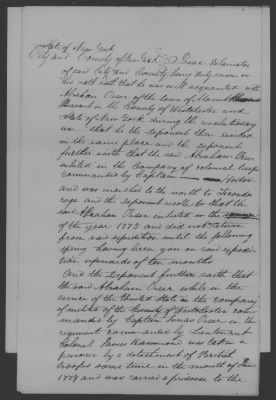 State of New York
City and County of New York
of said City and County being duly sworn on
his oath saith that he was well acquainted with
Abraham Orser of the town of Mount
Pleasant in the County of Westchester and
State of New York during the revolutionary
war that he the deponent then resided
in the same place and the deponent
further saith that the said Abraham Orser
enlisted in the Company of colonial troops
commanded by Captain
and was marched to the north to Ticonde
roga and the deponent recollects that the
said Abraham Orser enlisted in the
of the year 1775 and did not return
from said expedition until the following
spring having been gone on said expedi
tion upwards of ten months
And the Deponent further saith that
the said Abraham Orser while in the
service of the United States in the company
of militia of the County of Westchester com
manded by Captain Jonas Orser in the
regiment commanded by Lieutenant
Colonel James Hammond was taken a
prisoner by a detachment of British
troops some time in the month of
1779 and was carried a prisoner to the